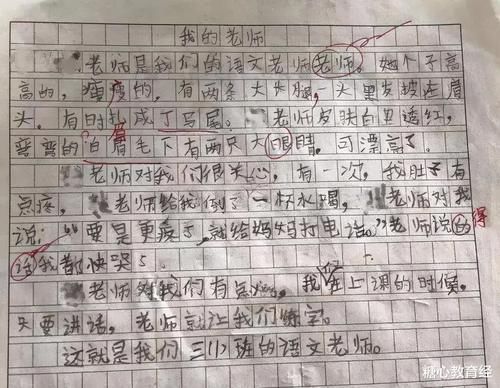 我的老师
老师是我们的语文老师老师。她个子高
高的,瘦瘦的,有两条大长腿,一头黑发披在肩
头。有时扎成丁马尾。老师皮肤白里透红,
弯弯的白眉毛下有两只大眼睛,可漂亮了。
老师对我们很关心,有一次,我肚子有
点疼,老师给我倒了一杯水喝,老师对我
说:“要是更疼了,就给妈妈打电话。”老师说的得
话我都快哭了
老师对我们有点凶。我们在上课的时候,
只要讲话,老师就让我们练字。
这就是我们三(1)班的语文老师。
糖心教育经